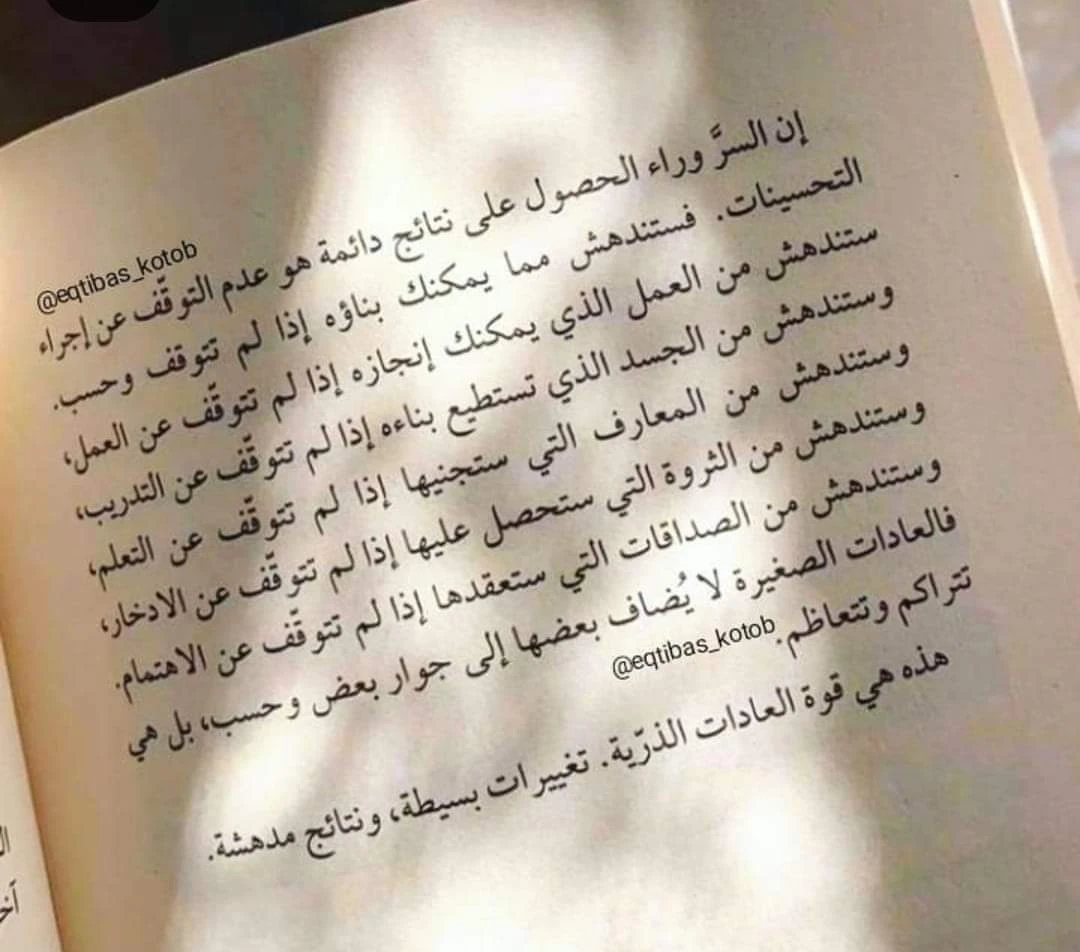 @eqtibas_kotob
إن السرَّ وراء الحصول على نتائج دائمة هو عدم التوقّف عن إجراء
التحسينات. فستندهش مما يمكنك بناؤه إذا لم تتوقف وحسب.
ستندهش من العمل الذي يمكنك إنجازه إذا لم تتوقّف عن العمل،
وستندهش من الجسد الذي تستطيع بناءه إذا لم تتوقّف عن التدريب،
وستندهش من المعارف التي ستجنيها إذا لم تتوقّف عن التعلم،
وستندهش من الثروة التي ستحصل عليها إذا لم تتوقّف عن الادخار،
وستندهش من الصداقات التي ستعقدها إذا لم تتوقّف عن الاهتمام.
فالعادات الصغيرة لا يُضاف بعضها إلى جوار بعض وحسب، بل هي
تتراكم وتتعاظم.
@eqtibas_kotob
هذه هي قوة العادات الذرّية. تغييرات بسيطة، ونتائج مدهشة.